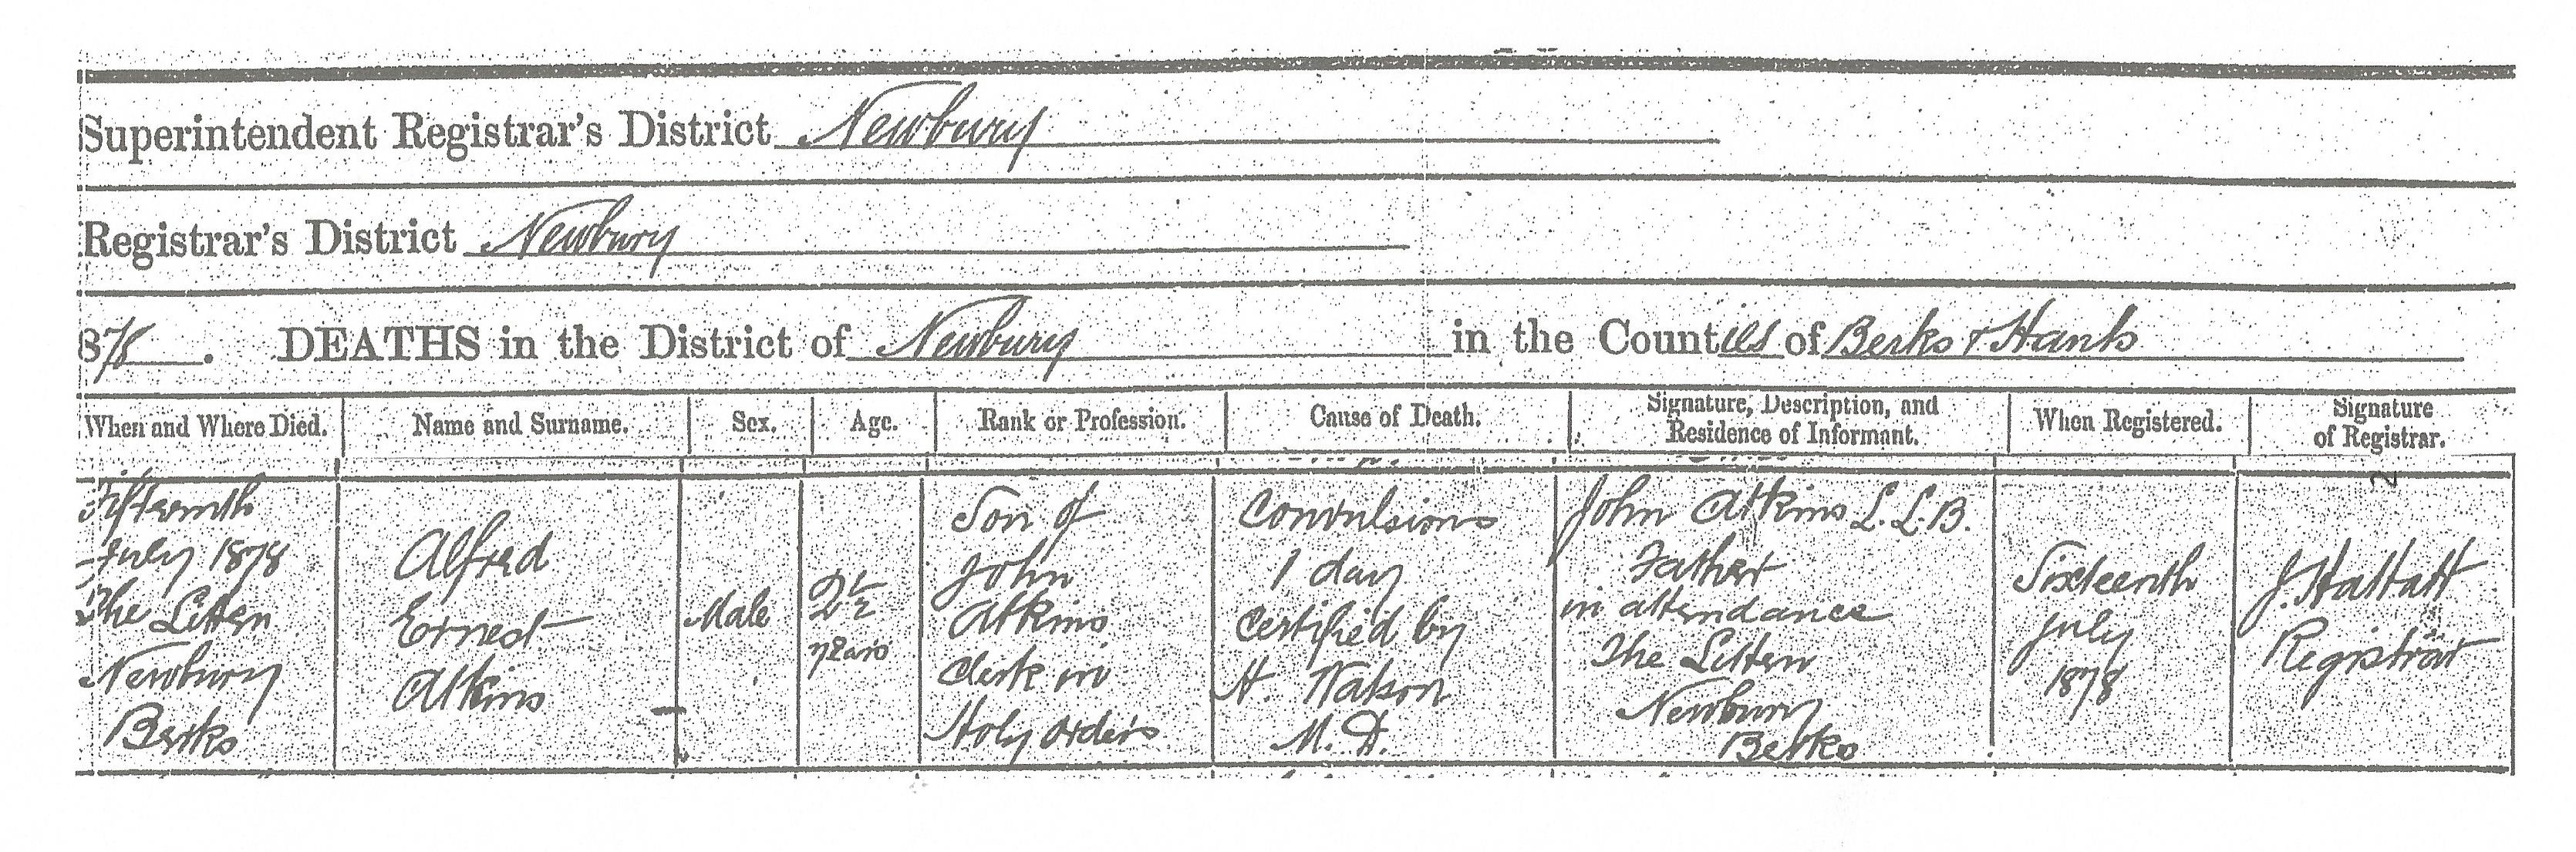 Superintendent Registrar's District Newbury
Registrar's District Newbury
878. DEATHS in the District of Newbury in the Counties of Berks & Hants
When and Where Died.
Name and Surname.
Sex.
Age.
Rank or Profession.
Cause of Death.
Signature, Description, and
Residence of Informant.
When Registered.
Signature
of Registrar.
2
Fifteenth
July 1878
The Litten
Newbury
Berks
Alfred
Ernest
Atkins
Male
2½
years
Son of
John
Atkins
Clerk in
Holy Orders
Convulsions
1 day
Certified by
H. Watson
M.D.
John Atkins L.L.B.
Father
in attendance
The Litten
Newbury
Berks
Sixteenth
July
1878
J.
Registrar